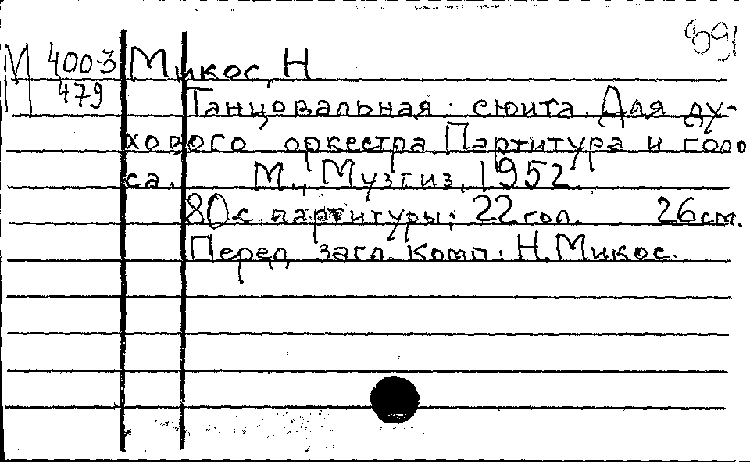 М 400-3 Микос, Н
479
Танцовальная сюита. Для ду-
хового оркестра. Партитура и голо
са. М., Музгиз, 1952.
80 с партитуры; 22 гол. 26 см.
Перед загл. комп: Н. Микос.